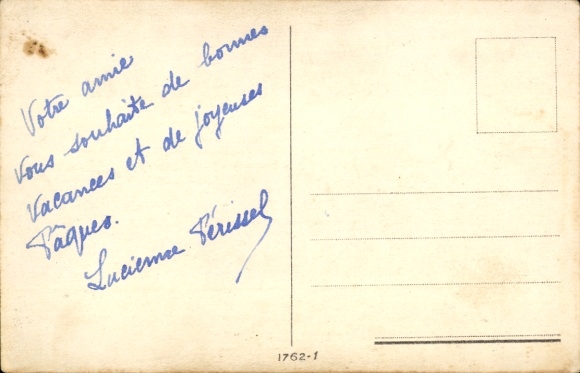 Votre amie
vous souhaite de bonnes
vacances et de joyeuses
Pâques.
Lucienne Périssel
1762-1